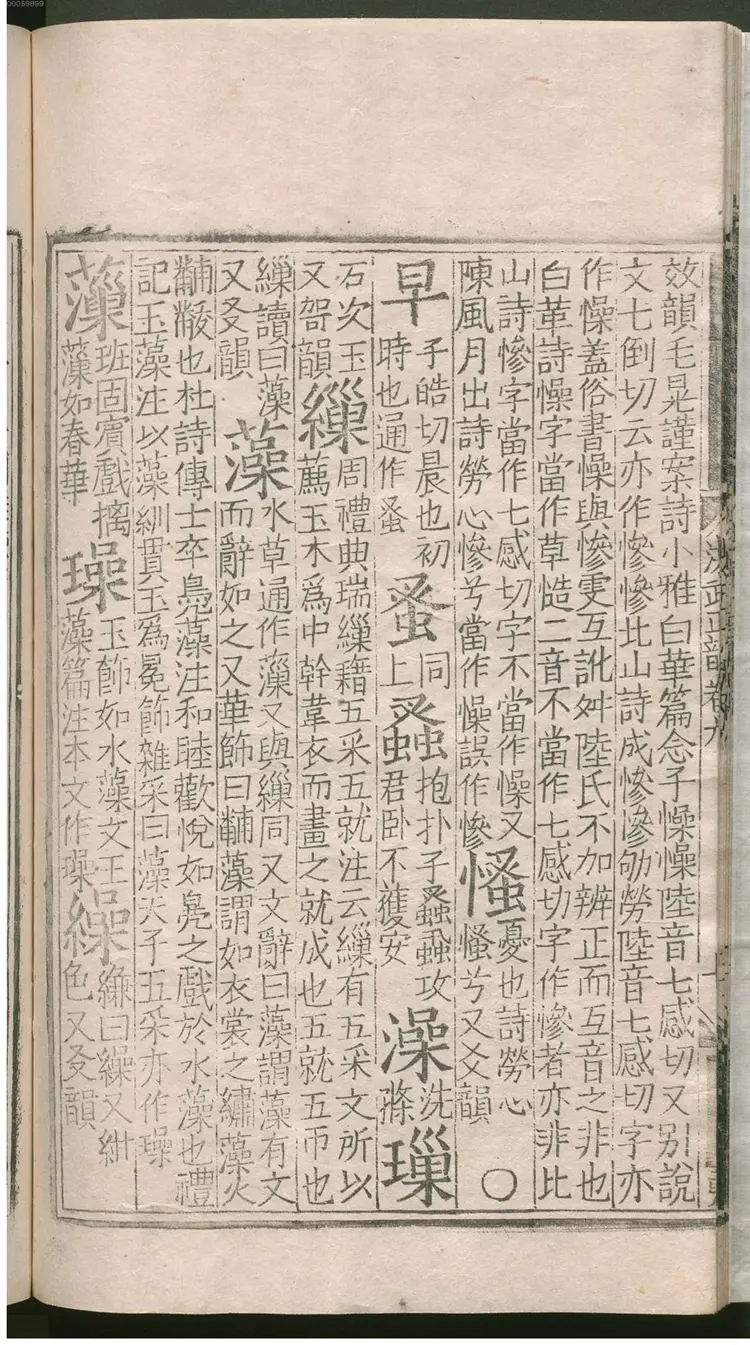 效韻毛晃謹案詩小雅白華篇念子懆懆陸音七感切又別說
文七倒切云亦作慘慘北山詩或慘慘劬勞陸音七感切字亦
作懆蓋俗書懆與慘更互訛舛陸氏不加辨正而互音之非也
白華詩懆字當作草慥二音不當作七感切字作慘者亦非北
山詩慘字當作七感切字不當作懆又
陳風月出詩勞心慘兮當作懆誤作慘
慅
憂也詩勞心
慅兮又爻韻
○
早
子皓切晨也初
時也通作蚤
蚤
同
上
蝨
抱扑子蝨蝨攻
君卧不獲安
澡
洗
滌
璅
石次玉
又哿韻
繅
周禮典瑞繅藉五采五就注云繅有五采文所以
薦玉木爲中幹韋衣而畫之就成也五就五帀也
繅讀曰藻
又爻韻
藻
水草通作薻又與繅同又文辭曰藻謂藻有文
而辭如之又華飾曰黼藻謂如衣裳之繡藻火
黼黻也杜詩傳士卒鳧藻注和睦歡悅如鳧之戲於水藻也禮
記玉藻注以藻紃貫玉爲冕飾雜采曰藻天子五采亦作璪
薻
班固賓戲摛
薻如春華
璪
玉飾如水藻文王
藻篇注本文作璪
繰
縑曰繰又紺
色又爻韻
正韻卷九